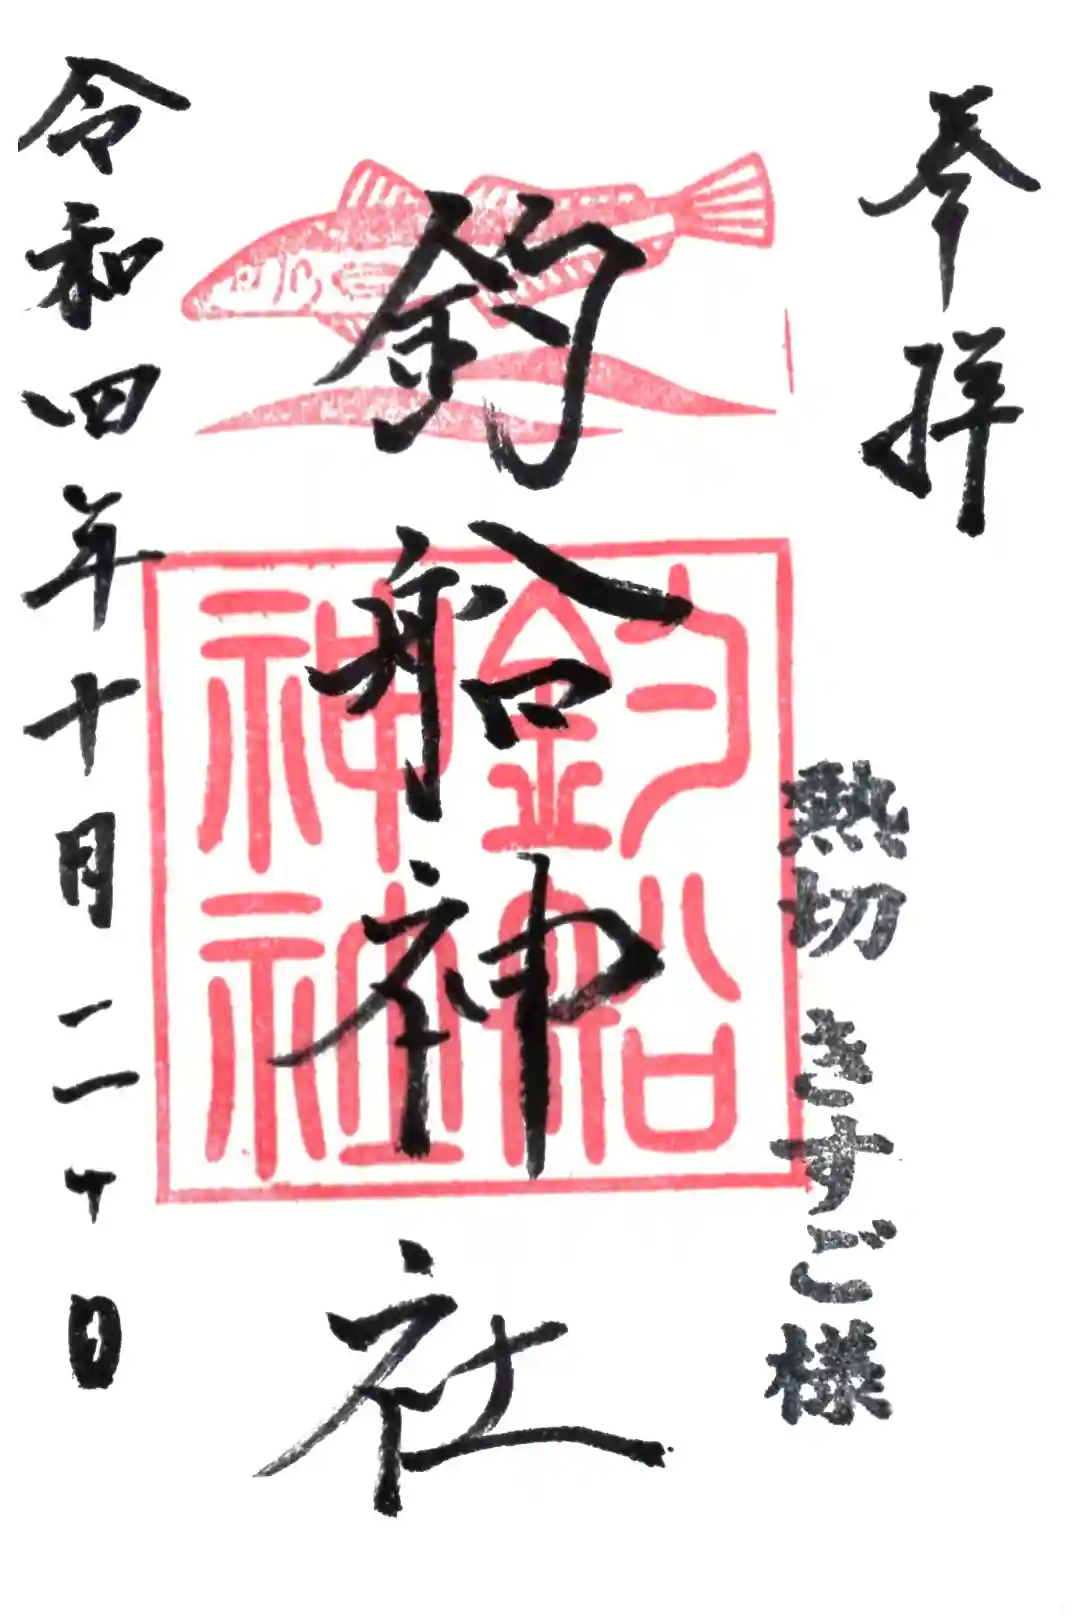 参拝
熱切 きすご様
釣船神社
釣船
神社
令和四年十月二十日